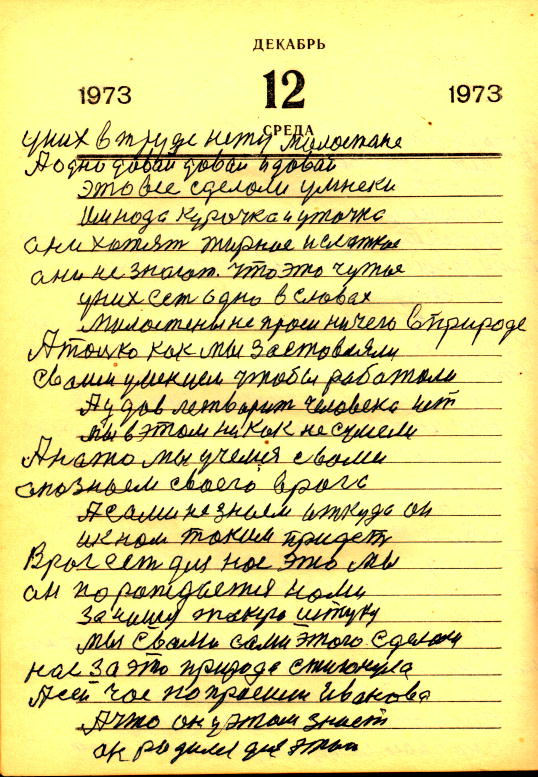 ДЕКАБРЬ
1973 12 1973
СРЕДА
уних втруде нету милостане
А одно довай довай идовай
это все сделоли умнеки
Имнода курочка и уточка
ани хотят жирное и слаткое
ани не знают. что это чужое
уних сет одно в словах
милостены не проси ничего в природе
А тошко как мы застовляли
своим умением чтобы работоли
А удов летворит человека нет
мы в этом ни как не сумели
А на это мы учемся своми
опознаем своего врога
А сами не знаем откуда он
ик ном таким придеть
Врог сет для нос это мы
он порождается номи
За нашу такую штуку
мы свами сами этого сделоли
нас за это природа стигонула
А сей чос попросим Иванова
А что он у этом знает
он родился для этого